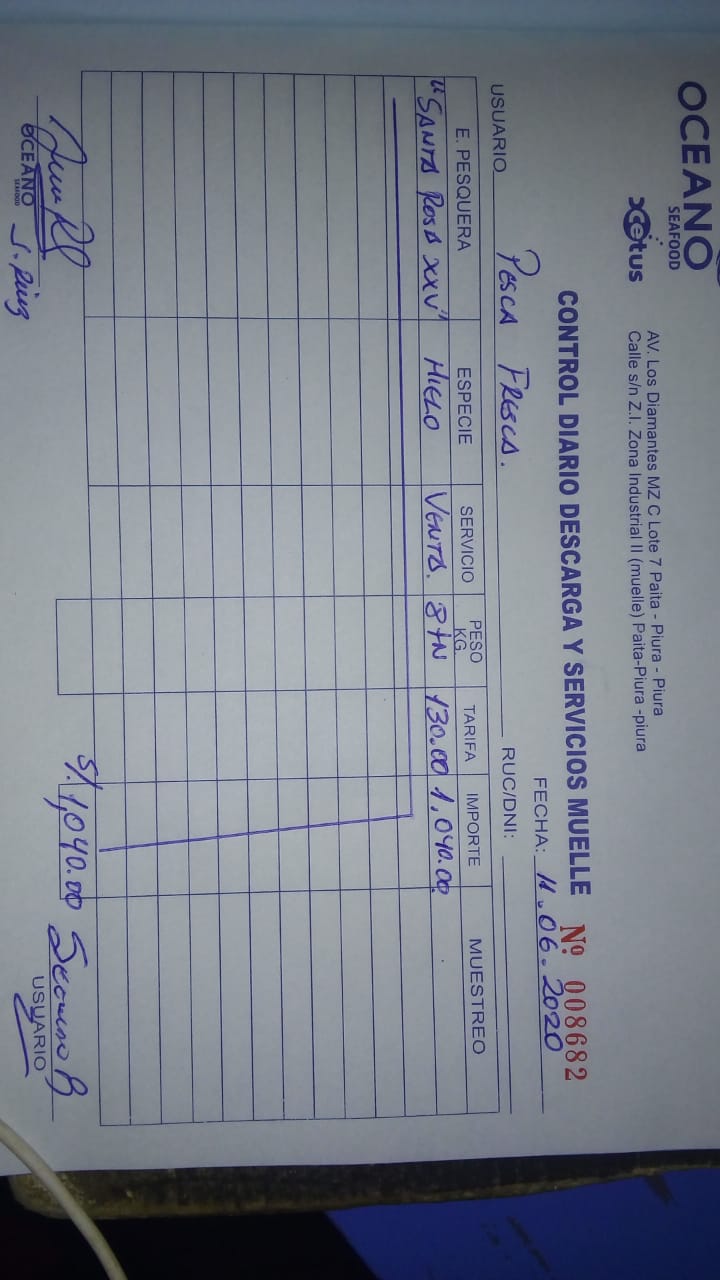 OCEANO
SEAFOOD
cetus
AV. Los Diamantes MZ C Lote 7 Paita - Piura - Piura
Calle s/n Z.I. Zona Industrial II (muelle) Paita-Piura -piura
CONTROL DIARIO DESCARGA Y SERVICIOS MUELLE Nº 008682
FECHA: 11.06.2020
USUARIO Pesca Fresca. RUC/DNI:
E. PESQUERA ESPECIE SERVICIO PESO KG TARIFA IMPORTE MUESTREO
"SANTA ROSA XXV" HIELO VENTA. 8 TN 130.00 1,040.00
S/. 1,040.00
OCEANO
SEAFOOD
USUARIO